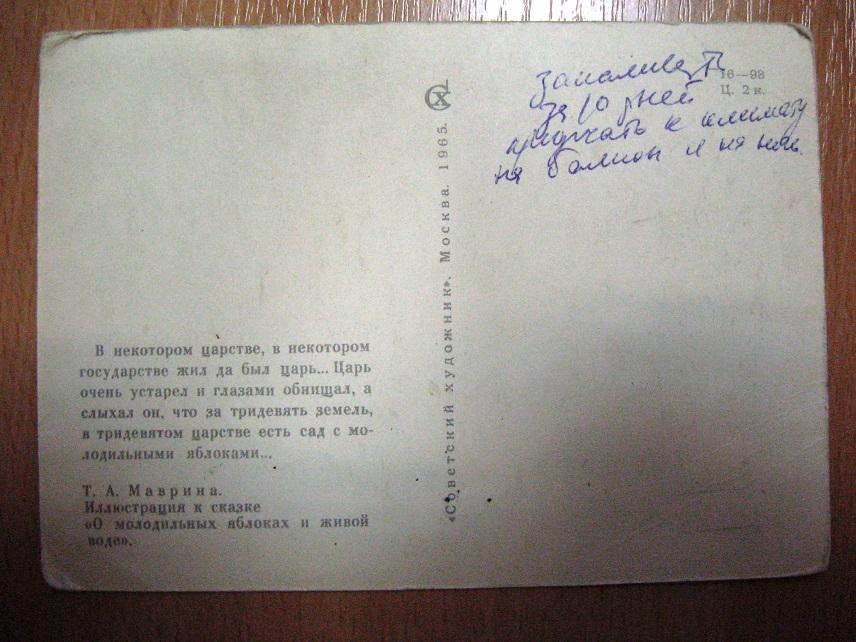 В некотором царстве, в некотором
государстве жил да был царь... Царь
очень устарел и глазами обнищал, а
слыхал он, что за тридевять земель,
в тридевятом царстве есть сад с мо-
лодильными яблоками...
Т. А. Маврина.
Иллюстрация к сказке
«О молодильных яблоках и живой
воде».
«Советский художник». Москва. 1965.
16—98
Ц. 2 к.
за 10 дней
к климату
на балкон и на